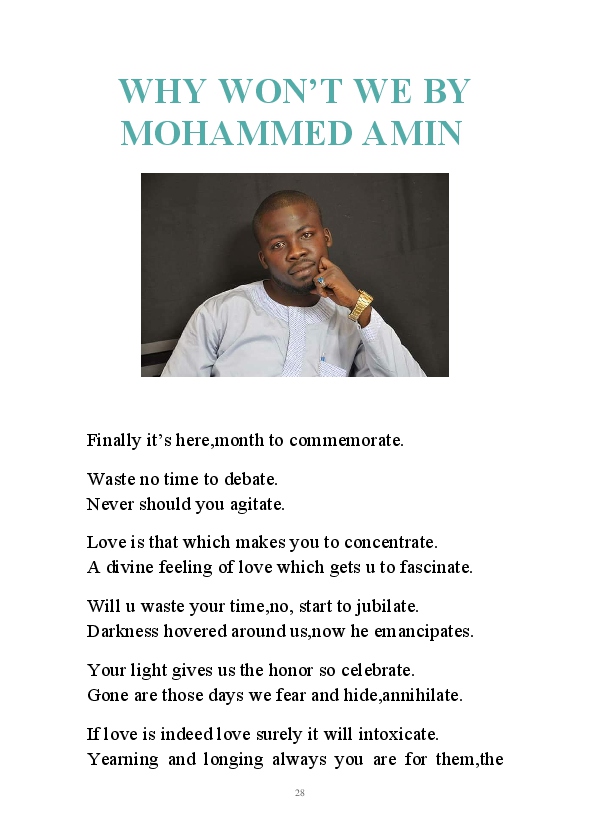 WHY WON’T WE BY
MOHAMMED AMIN
Finally it’s here,month to commemorate.
Waste no time to debate.
Never should you agitate.
Love is that which makes you to concentrate.
A divine feeling of love which gets u to fascinate.
Will u waste your time,no, start to jubilate.
Darkness hovered around us,now he emancipates.
Your light gives us the honor so celebrate.
Gone are those days we fear and hide,annihilate.
If love is indeed love surely it will intoxicate.
Yearning and longing always you are for them,the
28